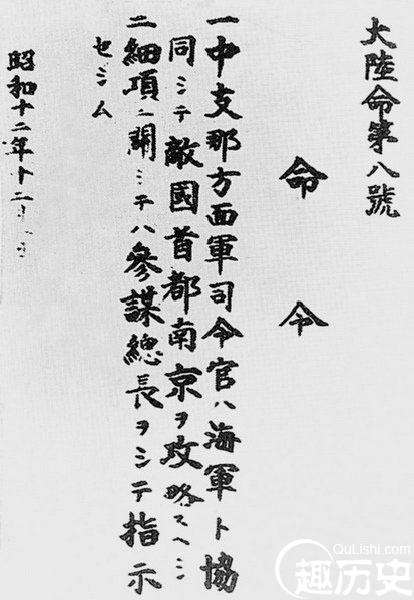 大陸命第八號
命令
一中支那方面軍司令官ハ海軍ト協
同シテ敵國首都南京ヲ攻略スヘシ
二細項ニ關シテハ參謀總長ヲシテ指示
セシム
昭和十二年十二
QuLishi.com
趣历史